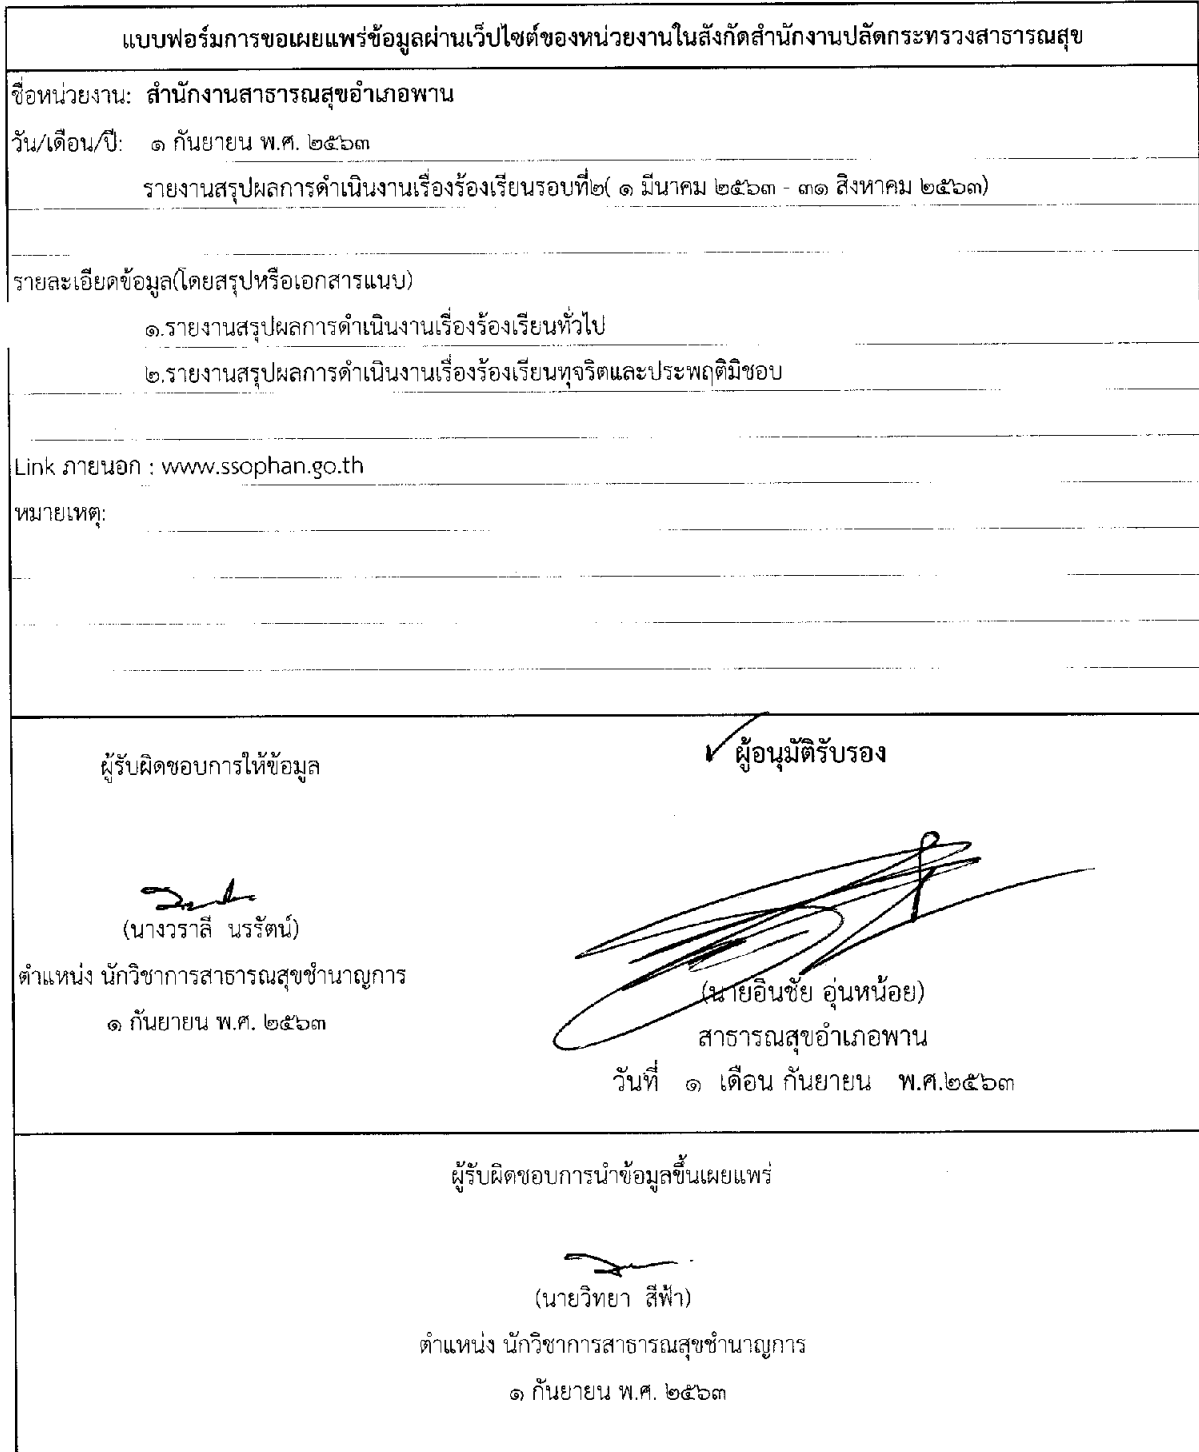 แบบฟอร์มการขอเผยแพร่ข้อมูลผ่านเว็ปไซต์ของหน่วยงานในสังกัดสำนักงานปลัดกระทรวงสาธารณสุข
ชื่อหน่วยงาน: สำนักงานสาธารณสุขอำเภอพาน
วัน/เดือน/ปี: ๑ กันยายน พ.ศ. ๒๕๖๓
รายงานสรุปผลการดำเนินงานเรื่องร้องเรียนรอบที่๒( ๑ มีนาคม ๒๕๖๓ - ๓๑ สิงหาคม ๒๕๖๓)
รายละเอียดข้อมูล(โดยสรุปหรือเอกสารแนบ)
๑.รายงานสรุปผลการดำเนินงานเรื่องร้องเรียนทั่วไป
๒.รายงานสรุปผลการดำเนินงานเรื่องร้องเรียนทุจริตและประพฤติมิชอบ
Link ภายนอก : www.ssophan.go.th
หมายเหตุ:
ผู้รับผิดชอบการให้ข้อมูล
(นางวราลี นรรัตน์)
ตำแหน่ง นักวิชาการสาธารณสุขชำนาญการ
๑ กันยายน พ.ศ. ๒๕๖๓
ผู้อนุมัติรับรอง
(นายอินชัย อุ่นหน้อย)
สาธารณสุขอำเภอพาน
วันที่ ๑ เดือน กันยายน พ.ศ.๒๕๖๓
ผู้รับผิดชอบการนำข้อมูลขึ้นเผยแพร่
(นายวิทยา สีฟ้า)
ตำแหน่ง นักวิชาการสาธารณสุขชำนาญการ
๑ กันยายน พ.ศ. ๒๕๖๓